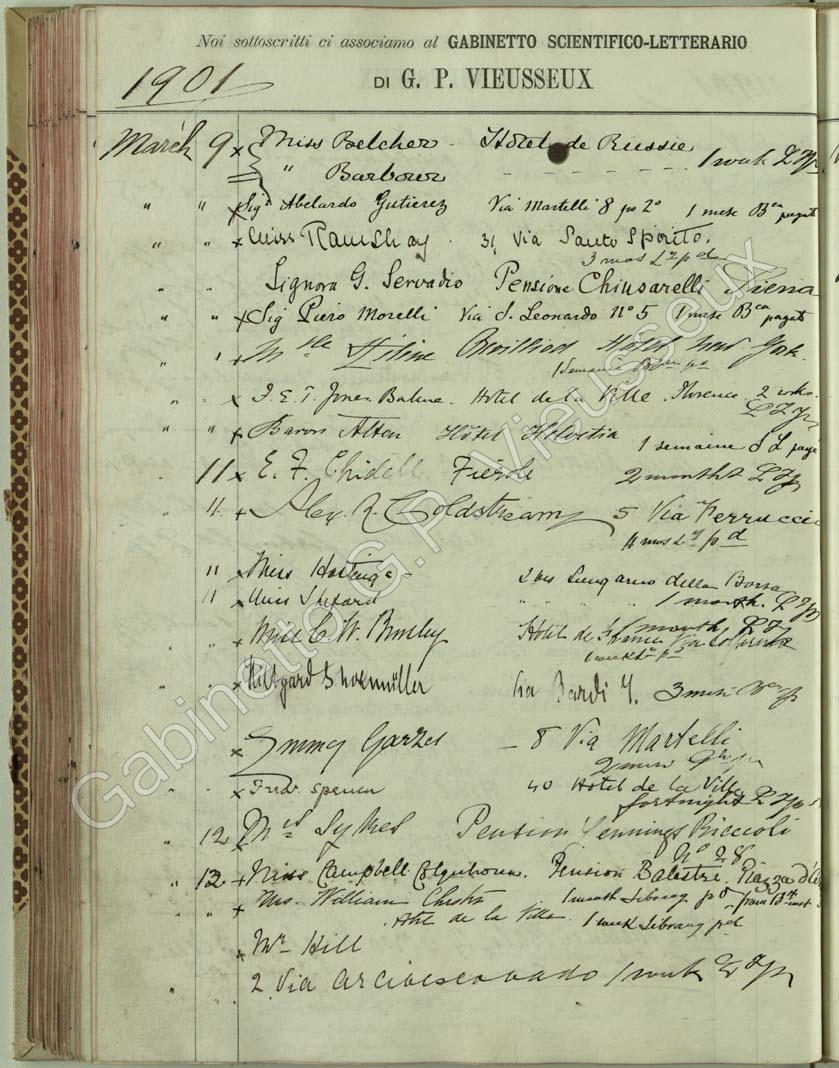 Noi sottoscritti ci associamo al GABINETTO SCIENTIFICO-LETTERARIO
1901
DI G. P. VIEUSSEUX
March 9 x Miss Belcher - Hôtel de Russie
" Barbour - - - - - - 1 week
" " x Sigr Abelardo Gutierez Via Martelli 8 po 2º 1 mese Bca pagato
" " x Miss Ramshay . 31, Via Santo Spirito.
3 mos Ly pd
" " Signora G. Servadio Pensione Chiusarelli Siena
" " x Sig Piero Morelli Via S. Leonardo Nº 5 1 mese Bca pagato
" x Mlle Hotel New York
1 Semaine
" x J. E. T. Jones. Hotel de la Ville. Florence. 2 wks.
" " x Baron Alten Hôtel Helvetia 1 semaine
" 11 x E. F. Chidell Fiesole 2 months
" 11 + Alex. R. Coldstream 5 Via Ferruccio
4 mos Ly pd
11 x Miss Hastings 2 bis Lung'arno della Borsa
11 x Miss " " " 1 month.
1 month
" x Miss C. W. Hotel de France Via
1 week
" x Via Bardi 3 mesi
x Emmy - 8 Via Martelli
x Fredk Spencer 40 Hotel de la Ville
fortnight
" 12 Mrs Sykes Pension Jennings Riccioli
Nº 28
" 12 + Miss Campbell Colquhoun. Pension Balestri. Piazza d'
" " + Mrs. William 1 month Library pd from 13th inst
Hotel de la Ville 1 week Library pd
Mr Hill
" 2 Via Arcivescovado 1 week
Gabinetto G.P. Vieusseux